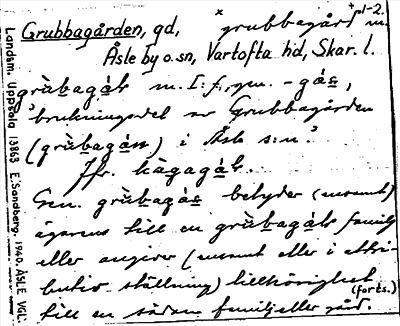 Grubbagården, gd, ˣgrubbagård m.
+pl-2.
Åsle by o. sn, Vartofta hd, Skar. l.
grùbagáḷ m. I: f., gen. -gás,
"brukningsdel av Grubbagården
(grùbagáṇ) i Åsle s:n."
Jfr. hàgagáḷ.
Gen. grùbagás betyder (ensamt)
ägarens till en grùbagáḷ familj
eller angiver (ensamt eller i attri-
butiv ställning) tillhörighet
till en sådan familj eller gård.
(forts.)
Landsm. Uppsala 13863 E. Sandberg. 1940. ÅSLE VGL.